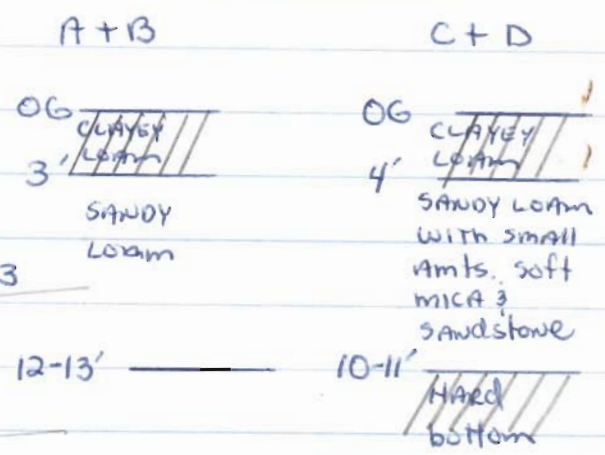 A + B
OG
CLAYEY
LOAM
3'
SANDY
Loam
3
12-13'
C + D
OG
CLAYEY
LOAM
4'
SANDY LOAM
with small
Amts. soft
MICA &
SANdstone
10-11'
HARd
bottom